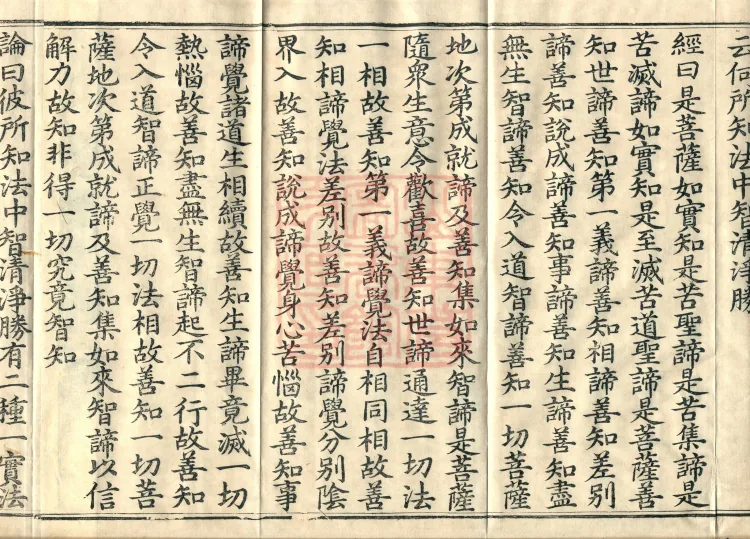 云何所知法中智清淨勝
經曰是菩薩如實知是苦聖諦是苦集諦是
苦滅諦如實知是至滅苦道聖諦是菩薩善
知世諦善知第一義諦善知相諦善知差別
諦善知說成諦善知事諦善知生諦善知盡
無生智諦善知令入道智諦善知一切菩薩
地次第成就諦及善知集如來智諦是菩薩
隨眾生意令歡喜故善知世諦通達一切法
一相故善知第一義諦覺法自相同相故善
知相諦覺法差別故善知差別諦覺分別陰
界入故善知說成諦覺身心苦惱故善知事
諦覺諸道生相續故善知生諦畢竟滅一切
熱惱故善知盡無生智諦起不二行故善知
令入道智諦正覺一切法相故善知一切菩
薩地次第成就諦及善知集如來智諦以信
解力故知非得一切究竟智知
論曰彼所知法中智清淨勝有二種一實法